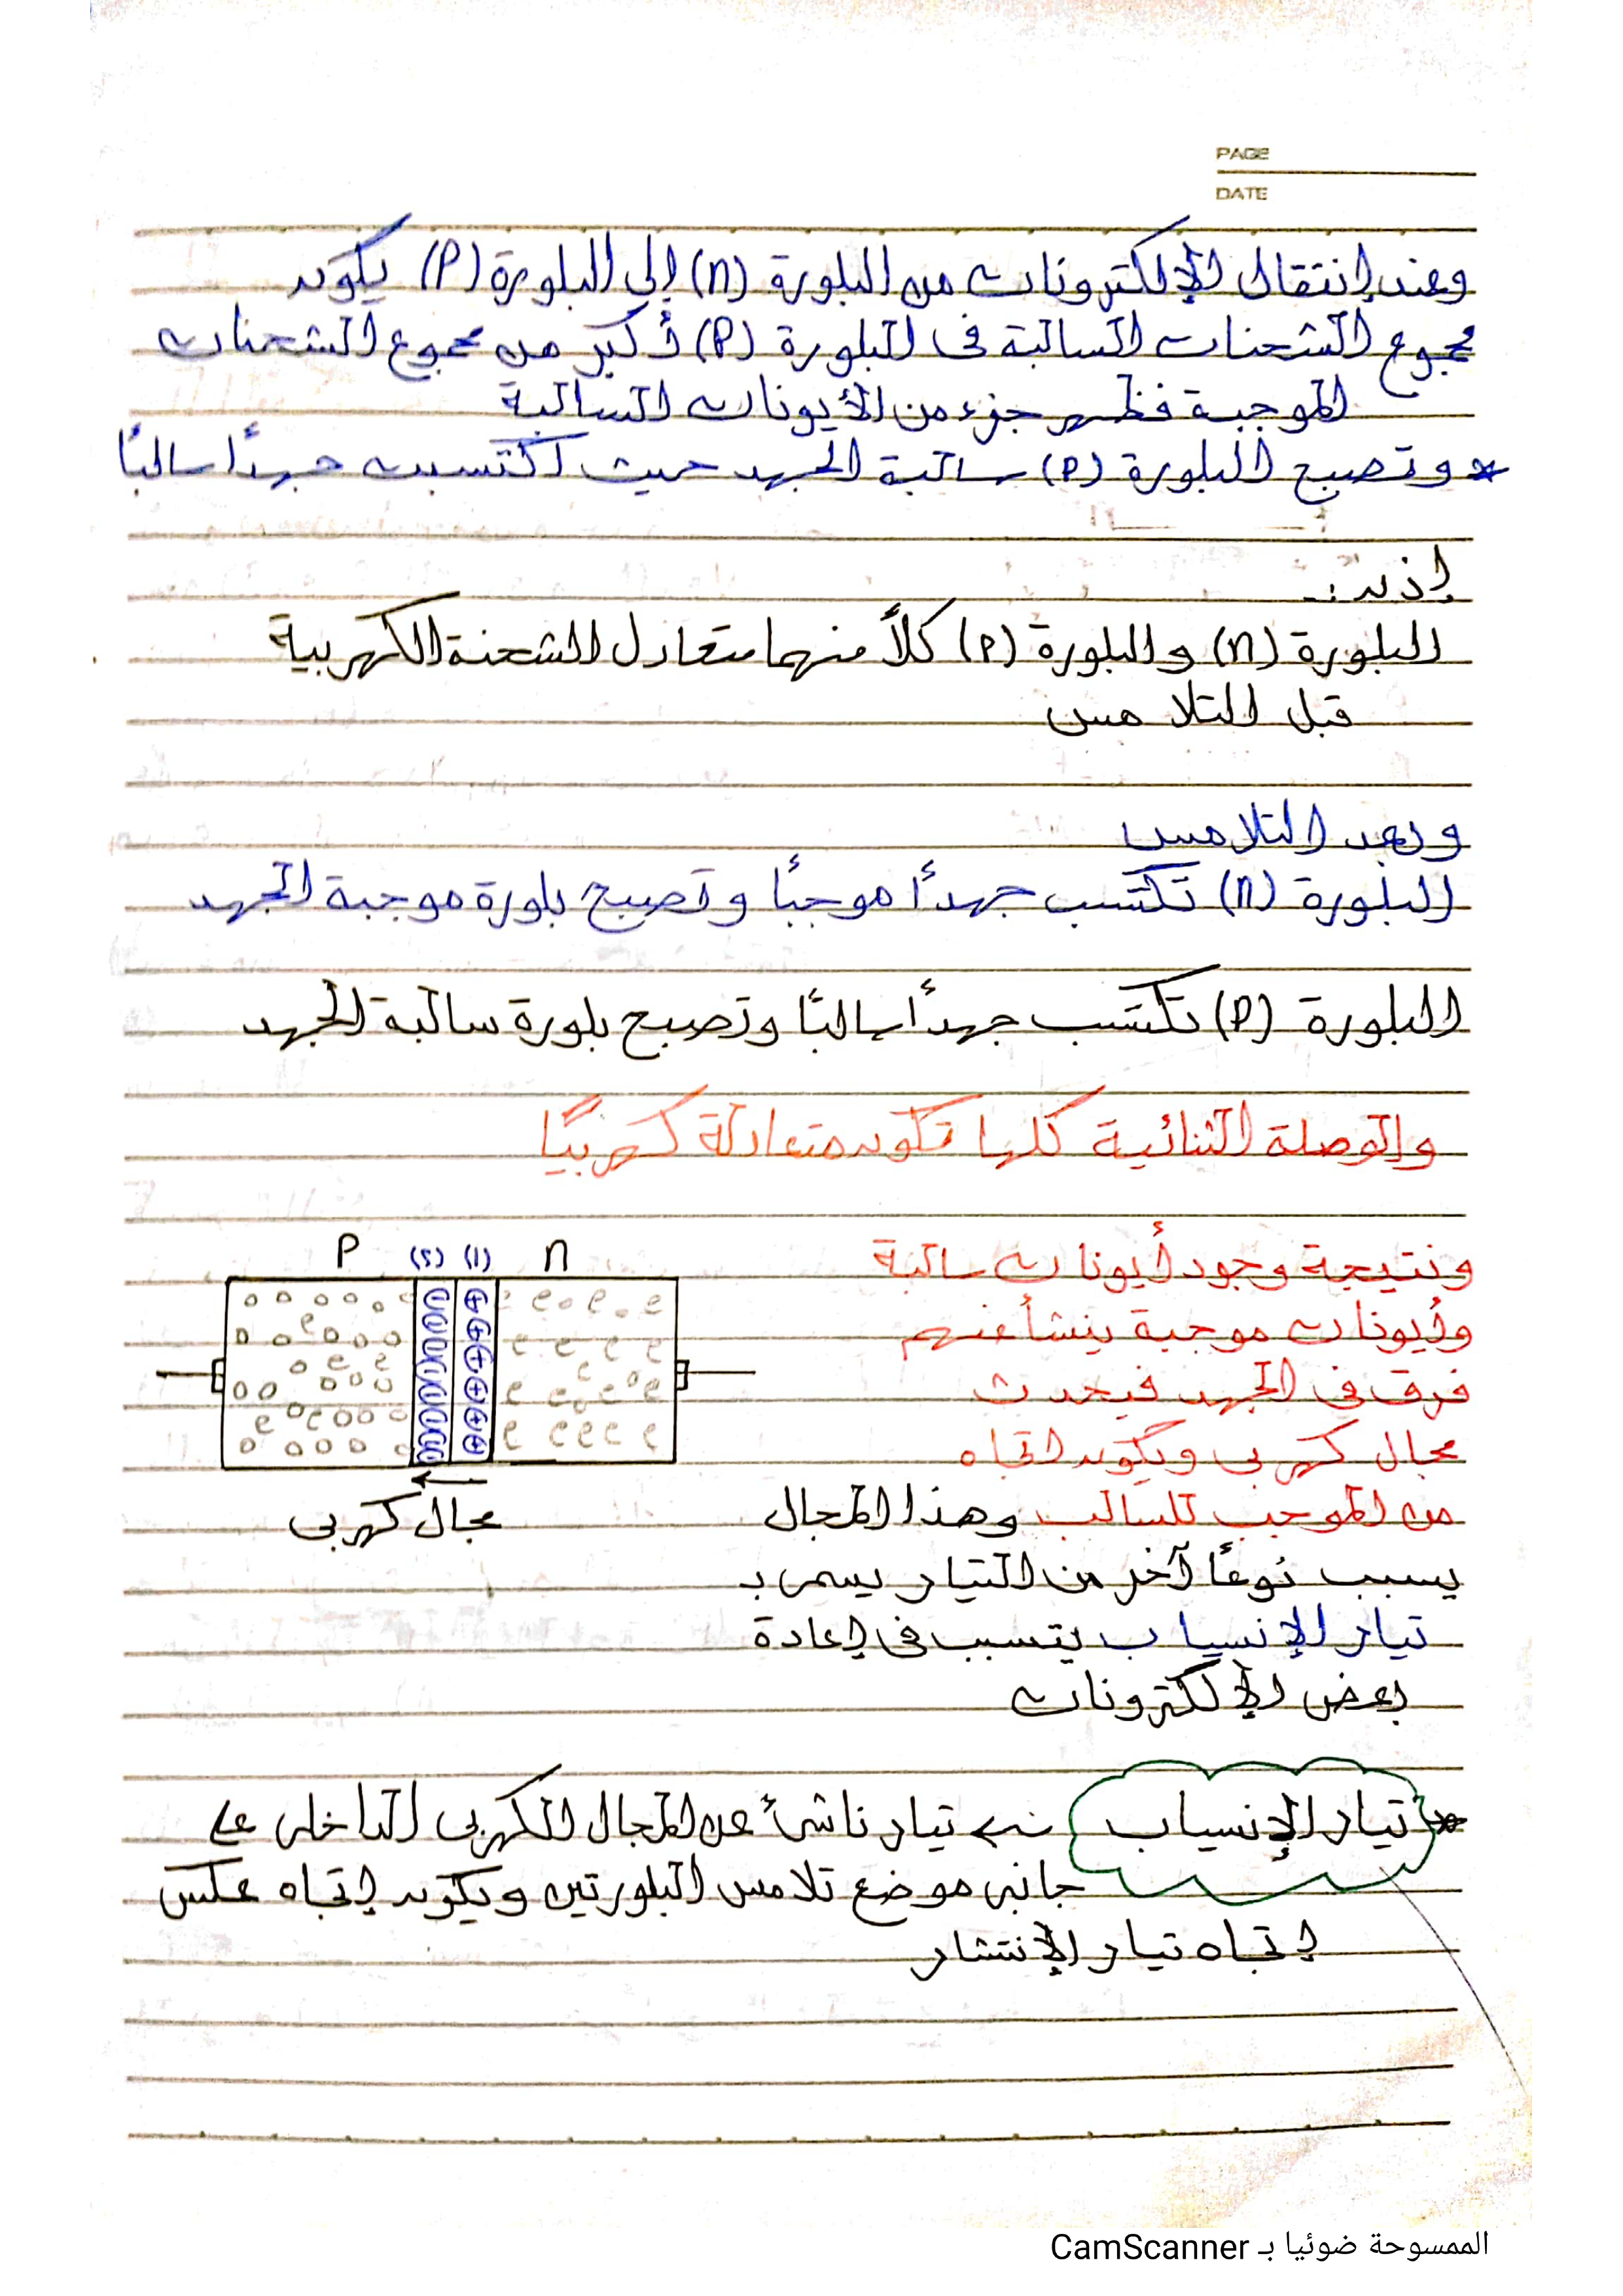 PAGE
DATE
وعند إنتقال الإلكترونات من البلورة (n) إلى البلورة (P) يكون
مجموع الشحنات السالبة فى البلورة (P) أكبر من مجموع الشحنات
الموجبة فظهر جزء من الأيونات السالبة
* وتصبح البلورة (P) سالبة الجهد حيث اكتسبت جهدأ سالبًا
إذن :-
البلورة (n) والبلورة (P) كلاً منهما متعادل الشحنة الكهربية
قبل التلامس
وبعد التلامس
البلورة (n) تكتسب جهدأ موجبًا وتصبح بلورة موجبة الجهد
البلورة (P) تكتسب جهدأ سالبًا وتصبح بلورة سالبة الجهد
والوصلة الثنائية كلها تكون متعادلة كهربيًا
P (٢) (١) n
ونتيجة وجود أيونات سالبة
وأيونات موجبة ينشأ عنهم
فرق فى الجهد فيحدث
مجال كهربى ويكون اتجاه
من الموجب للسالب وهذا المجال
مجال كهربى
يسبب نوعًا آخر من التيار يسمى بـ
تيار الإنسياب يتسبب فى إعادة
بعض الإلكترونات
* تيار الإنسياب تيار ناشئ عن المجال الكهربى الداخلى على
جانبى موضع تلامس البلورتين ويكون إتجاه عكس
إتجاه تيار الإنتشار
الممسوحة ضوئيا بـ CamScanner